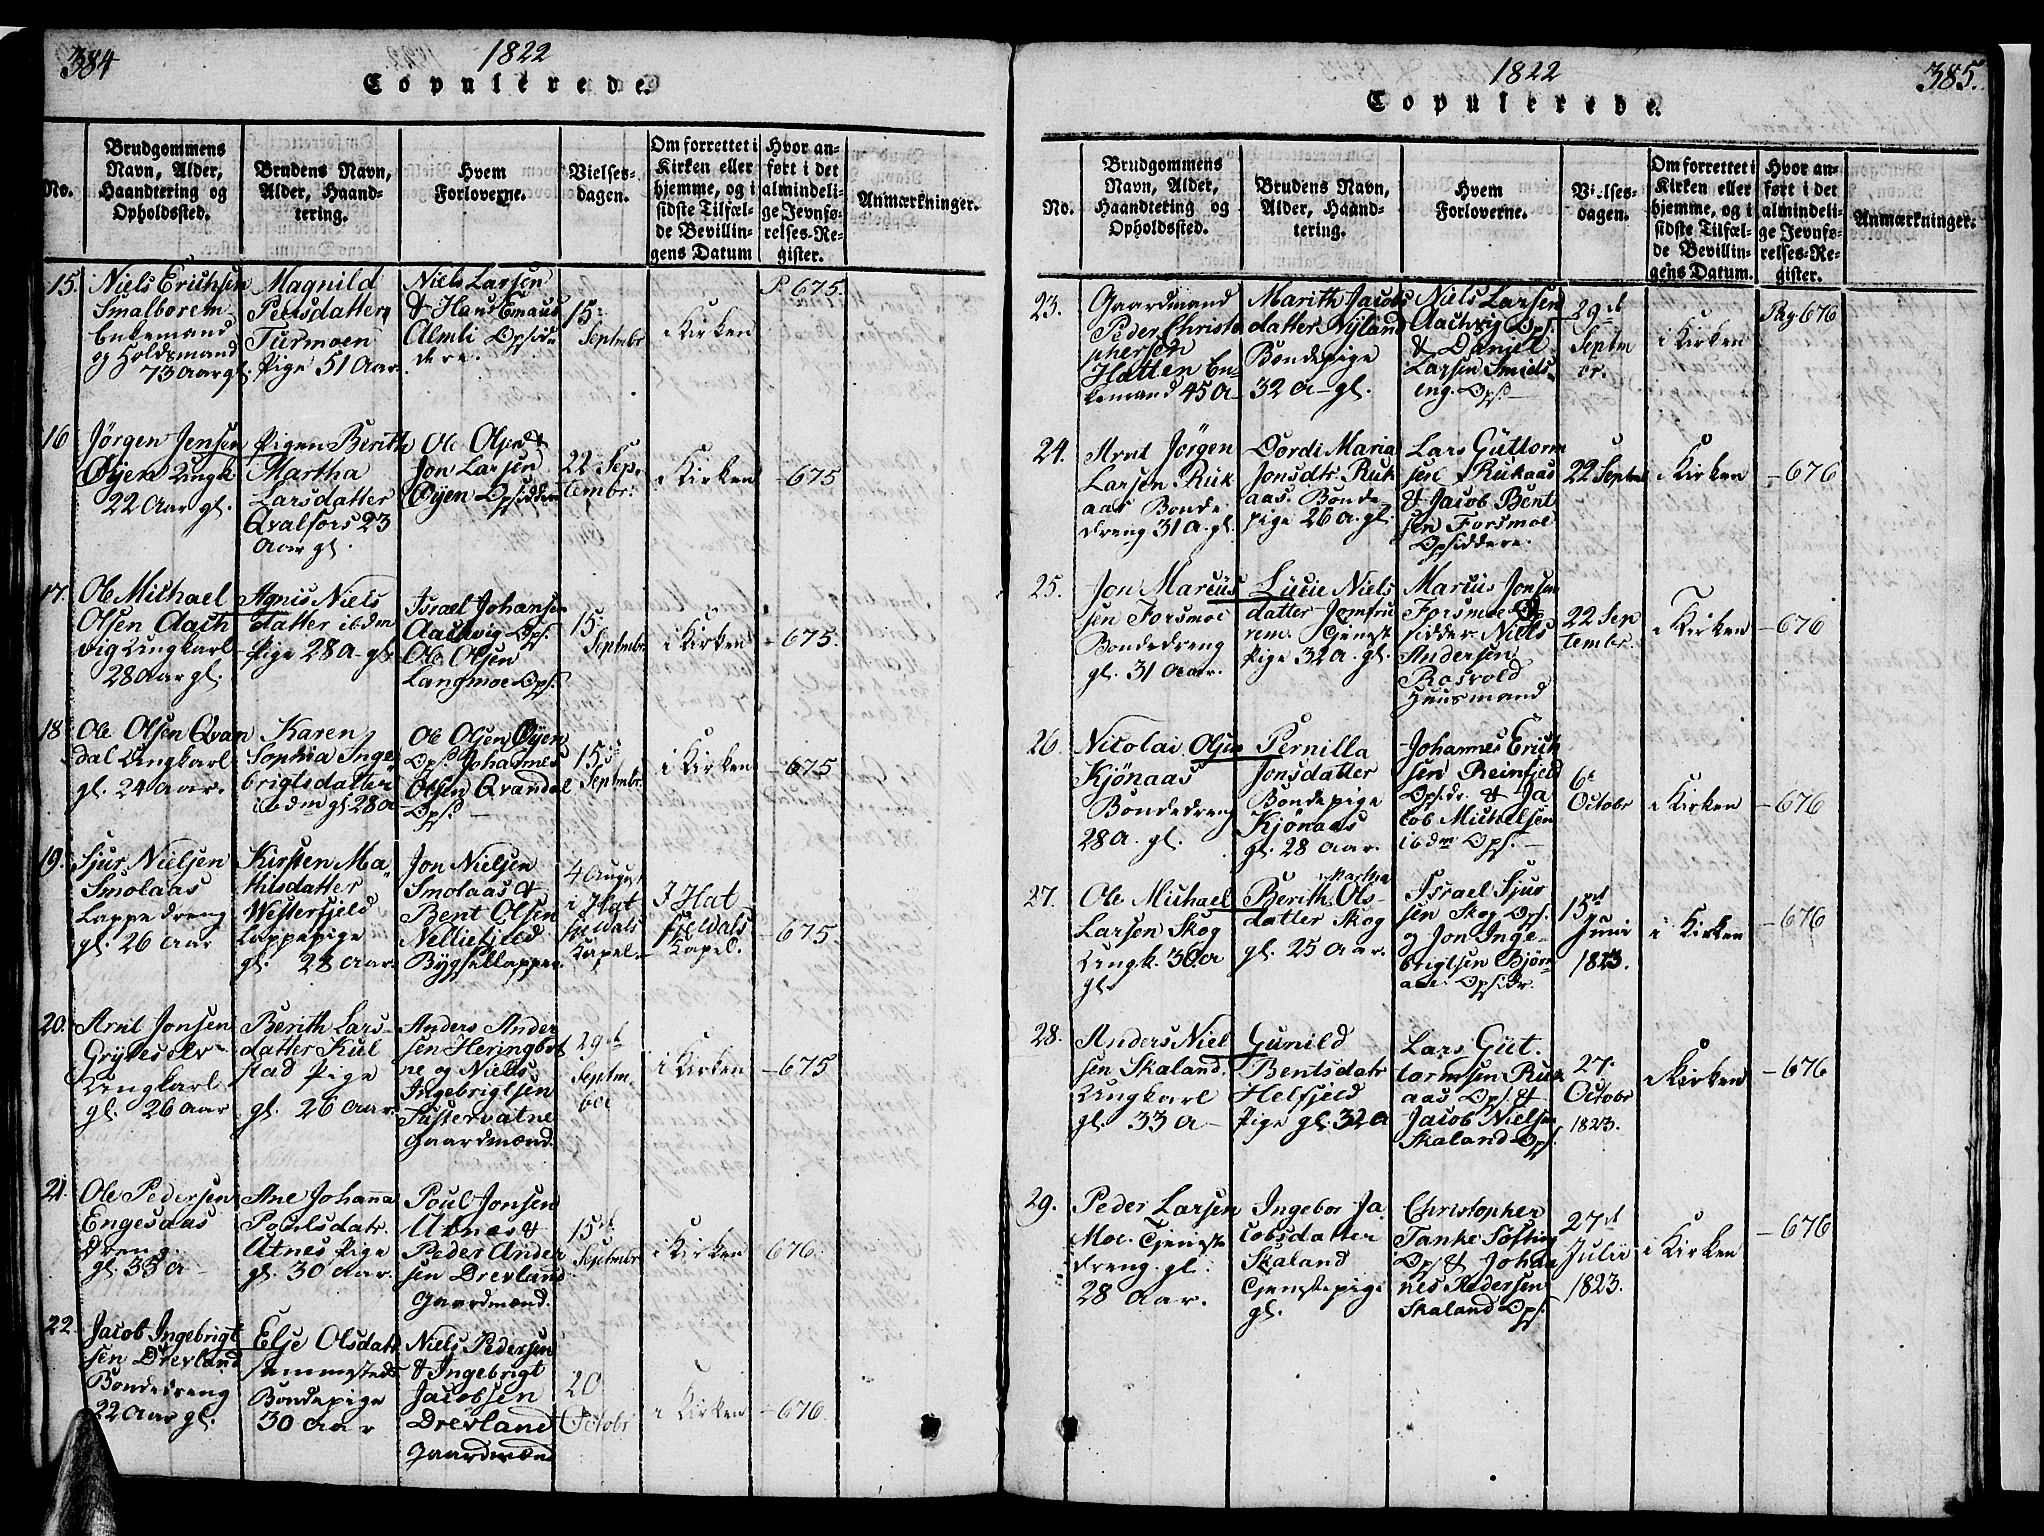 384
1822
Copulerede.
No.
Brudgommens Navn, Alder, Haandtering og Opholdssted.
Brudens Navn, Alder, Haandtering.
Hvem Forloverne.
Vielses-dagen.
Om forrettet i Kirken eller hjemme, og i sidste Tilfælde Bevillingens Datum
Hvor anført i det almindelige Jevnførelses-Register.
Anmærkninger.
15.
Niels Erichsen
Smalborem
Enkemand
og Holdsmand
73 Aar gl.
Magnild
Peersdatter
Turmoen
Pige 51 Aar.
Niels Larsen
& Hans Emaus
Almli Opsid
dere.
15.
Septmbr
i Kirken
P 675.
16
Jörgen Jensen
Øyen Ungk.
22 Aar gl.
Pigen Berith
Martha
Larsdatter
Qvalfors 23
Aar gl.
Ole Olsen &
Jon Larsen
Øyen Opsiddere
22 Sep.
tembr:
i Kirken
- 675
17.
Ole Michael
Olsen Aach
vig Ungkarl
28 Aar gl.
Agnis Niels
datter ibdm
Pige 28 A- gl.
Israel Johansen
Aachvig Ops.
Ole Olsen
Langmoe Ops.
15.
Septmbr.
i Kirken
- 675.
18.
Ole Olsen Qvan
dal Ungkarl
gl. 24 Aar.
Karen
Sophia Inge
brigtsdatter
ibdm gl. 28 A
Ole Olsen Øyen
Ops. Johannes
Olsen Qvandal
Ops.
15.
Septmbr.
i Kirken
- 675
19.
Sjur Nielsen
Smolaas
Lappe dreng
gl. 26 Aar
Kirsten Ma-
thisdatter
Westerfjeld
Lappepige
gl. 28 Aar.
Jon Nielsen
Smolaas &
Bent Olsen
Nelliefjeld
Bygsellapper.
4 August
i Hat
fjeldals
Kapel.
I Hat
fjeldals
Kapel.
- 675.
20.
Arnt Jonsen
Gryteselv
Ungkarl
gl. 26 Aar
Berith Lars-
datter Kul
stad Pige
gl. 26 Aar.
Anders Ander
sen Heringbot
ne og Niels
Ingebrigtsen
Sustervatne
Gaardmænd.
29de
Septm-
ber
i Kirken
- 675
21.
Ole Pedersen
Engesaas
dreng.
gl. 35 A
Ane Johanna
Poulsdatr.
Utnes Pige
gl. 30 Aar.
Poul Jonsen
Utnes &
Peder Ander
sen Drevland
Gaardmænd.
15de
Septmbr
i Kirken
676.
22.
Jacob Ingebrigt
sen Drevland
Bondedreng
22 Aar gl.
Else Olsdatt
Bondepige
30 Aar
Niels Pedersen
& Ingebrigt
Jacobsen
Drevland
Gaardmænd
20
Octobr
i Kirken
- 676.
1822
385.
Copulerede.
No.
Brudgommens Navn, Alder, Haandtering og Opholdssted.
Brudens Navn, Alder, Haandtering.
Hvem Forloverne.
Vielses-dagen.
Om forrettet i Kirken eller hjemme, og i sidste Tilfælde Bevillingens Datum.
Hvor anført i det almindelige Jevnførelses-Register.
Anmærkninger.
23.
Gaardmand
Peder Christo
phersen
Hatten En-
kemand 45 A
Marith Jacobs
datter Nyland
Bondepige
32 A- gl.
Niels Larsen
Aachvig Ops.
& Daniel
Larsen Smeds-
eng. Ops.
29de
Septm
br.
i Kirken
Pag 676
24.
Arnt Jörgen
Larsen Ruk
aas Bonde
dreng 31 A. gl.
Dordi Maria
Jonsdtr. Ruk
aas. Bonde
pige 26 A. gl.
Lars Guttorm
sen Rukaas
& Jacob Bent
sen Forsmoe
Opsiddere.
22 Septm
i Kirken
- 676
25.
Jon Marcus
sen Forsmoe
Bondedreng
gl. 31 Aar.
Lucie Niels
datter Jomfru
rem. Tjenest
Pige 32 A. gl.
Marcus Jonsen
Forsmoe Op
sidder Niels
Andersen
Rosvold
Huusmand
22 Sep
tembr.
i Kirken
- 676
26.
Nicolai Olsen
Kjönaas
Bondedreng
28 A. gl.
Pernilla
Jonsdatter
Bondepige
Kjönaas
gl. 28 Aar.
Johannes Erich
sen Reinfjeld
Opsdr. & Ja
cob Michelsen
ibdm Ops.
6te
Octobr
i Kirken
- 676
27.
Ole Michael
Larsen Skog
Ungk. 30 A
gl.
Berith Martha Ols-
datter Skog
gl. 25 Aar.
Israel Sjur
sen Skog Ops.
og Jon Inge-
brigtsen Björn
aae. Opsidr.
15de
Juni
1823.
i Kirken
- 676
28.
Anders Niel
sen Skaland.
Ungkarl
gl. 33 A-
Gunild
Bentsdatr
Helfjeld
Pige gl. 32 A
Lars Gut.
tormsen Ruk
aas Ops. &
Jacob Nielsen
Skaland Ops.
27.
Octobr
1823.
i Kirken
- 676
29.
Peder Larsen
Moe. Tjeneste
dreng. gl.
28 Aar.
Ingebor Ja
cobsdatter
Skaland
Tjenstepige
gl.
Christopher
Tanke Softing
Ops & Johan
nes Pedersen
Skaland Ops.
27de
Julii
1823.
i Kirken
- 676